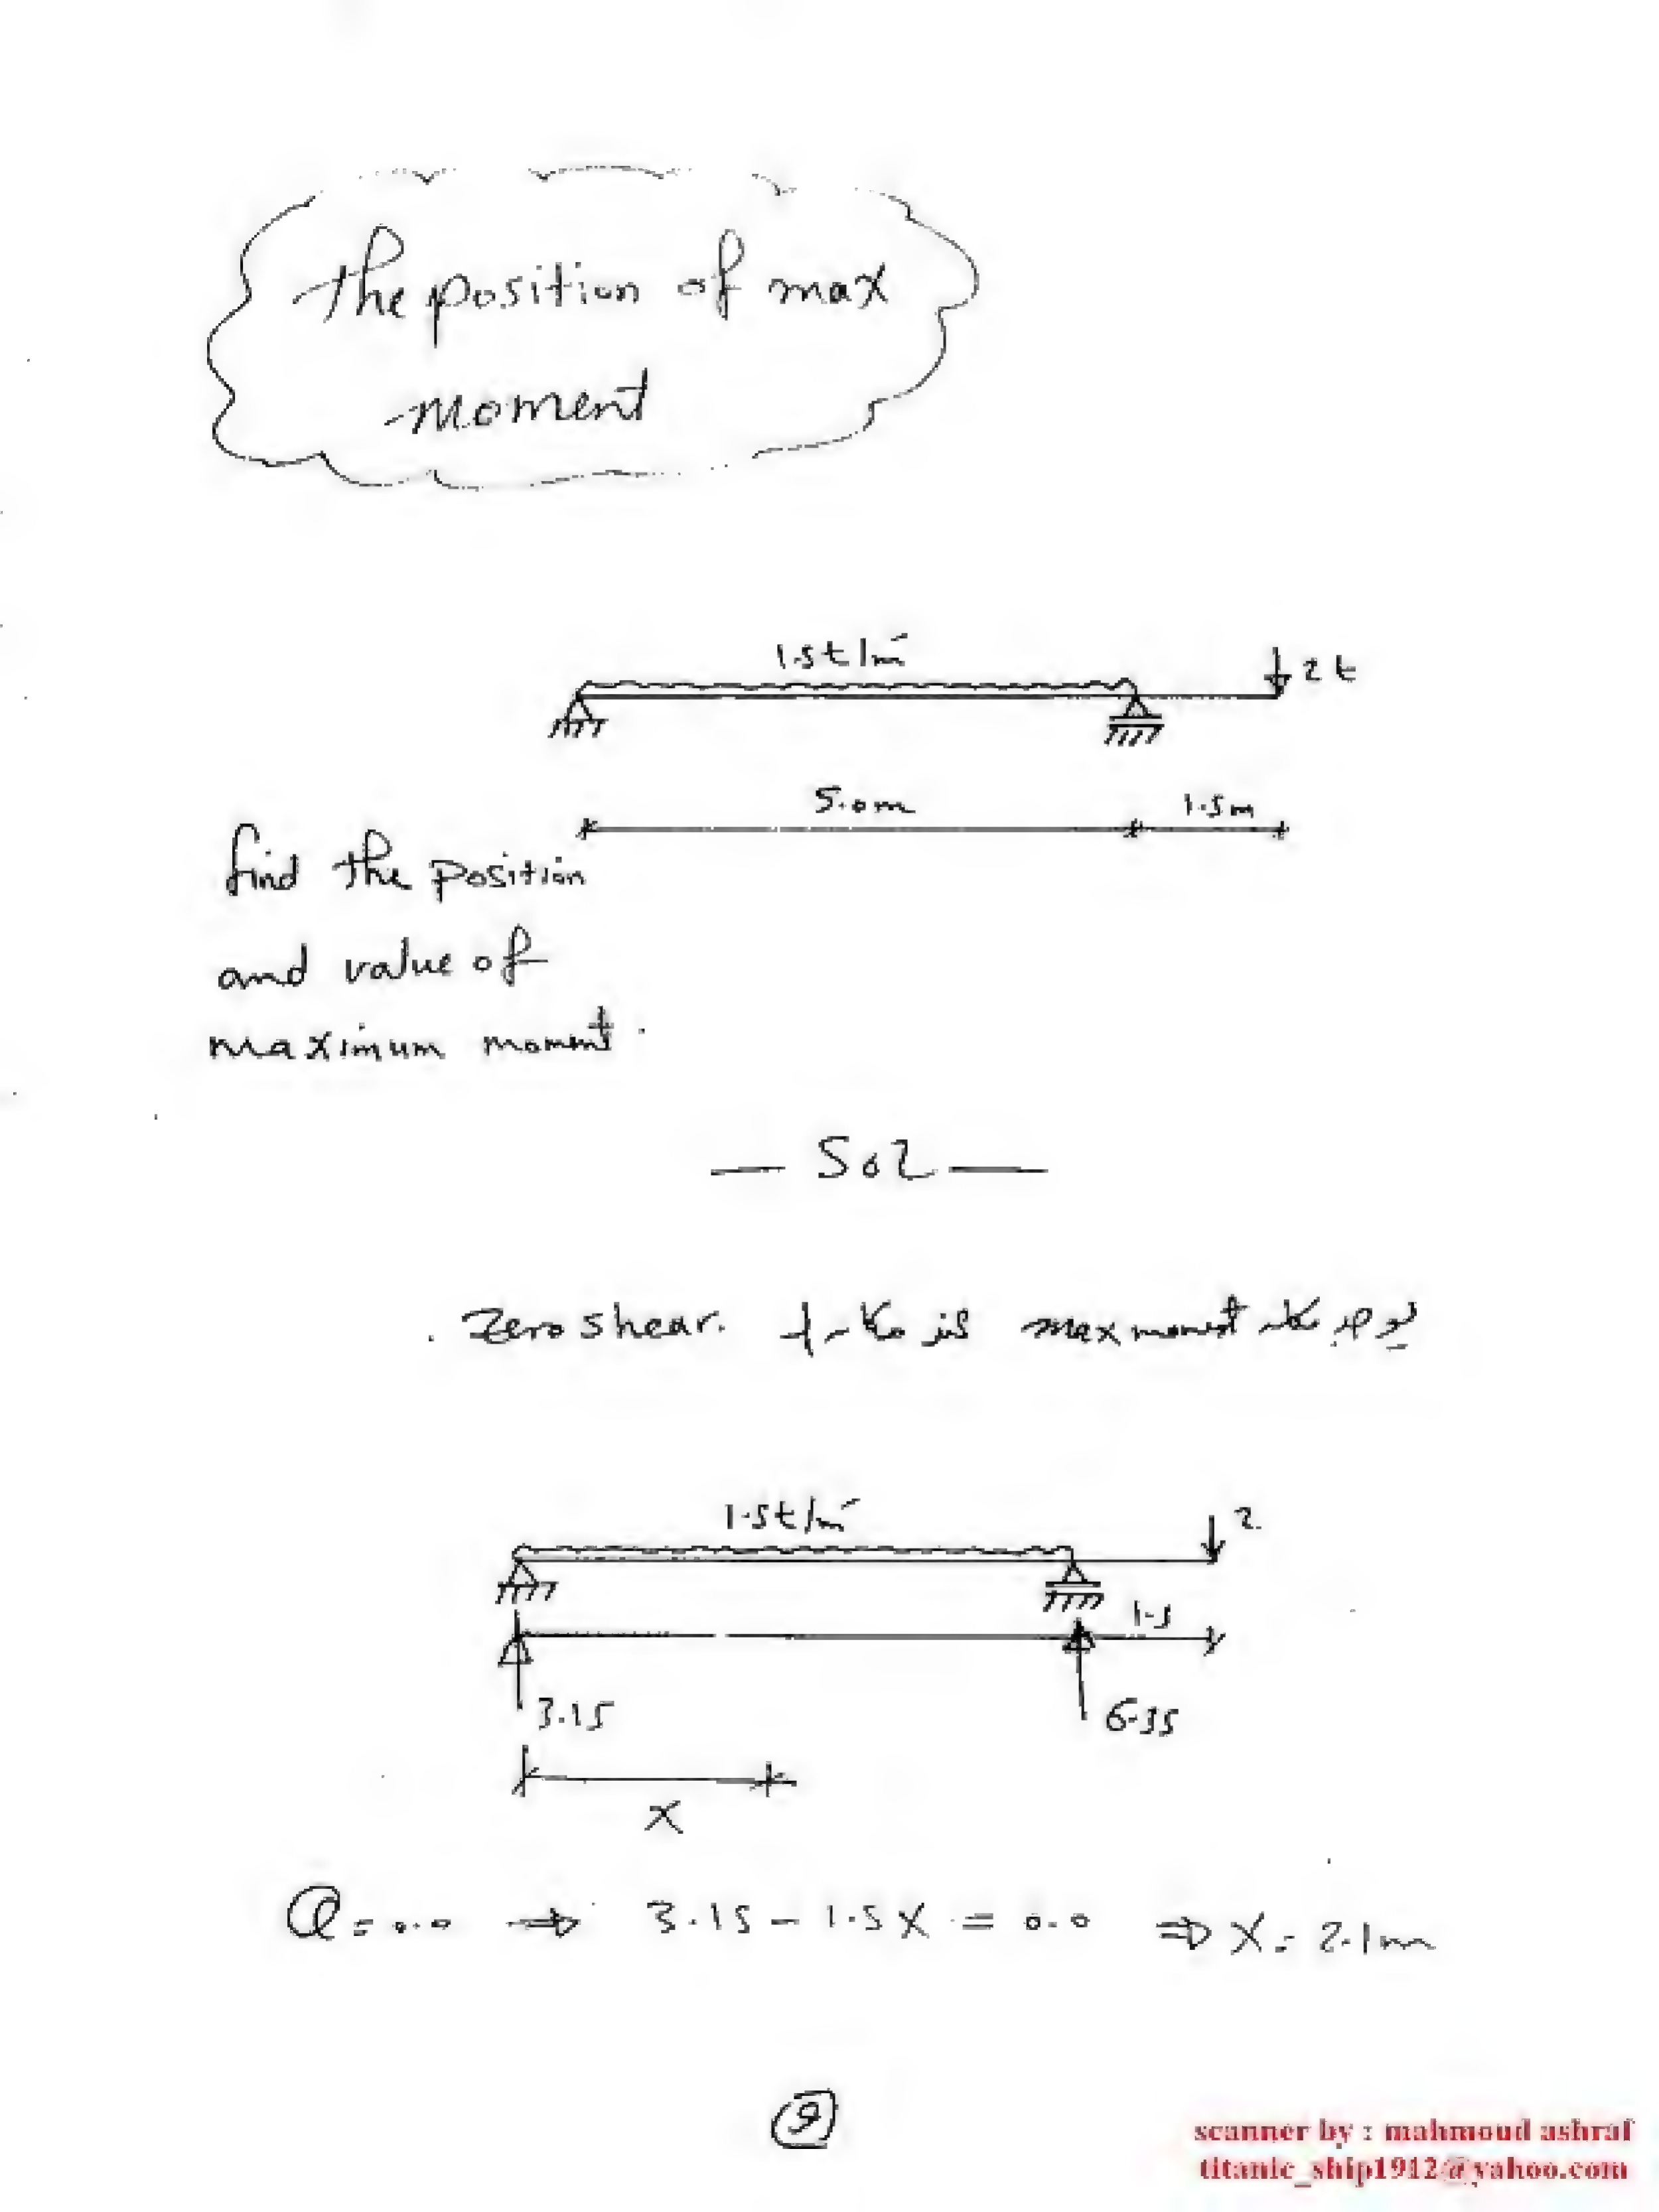 The position of max
moment
1.5t/m'
2t
5.0m
1.5m
find the position
and value of
maximum moment.
— Sol —
zero shear. max moment
1.5t/m'
2
1.5
3.15
6.35
X
Q=0.0 ⇒ 3.15 - 1.5X = 0.0 ⇒ X = 2.1m
9
scanner by : mahmoud ashraf
titanic_ship1912@yahoo.com